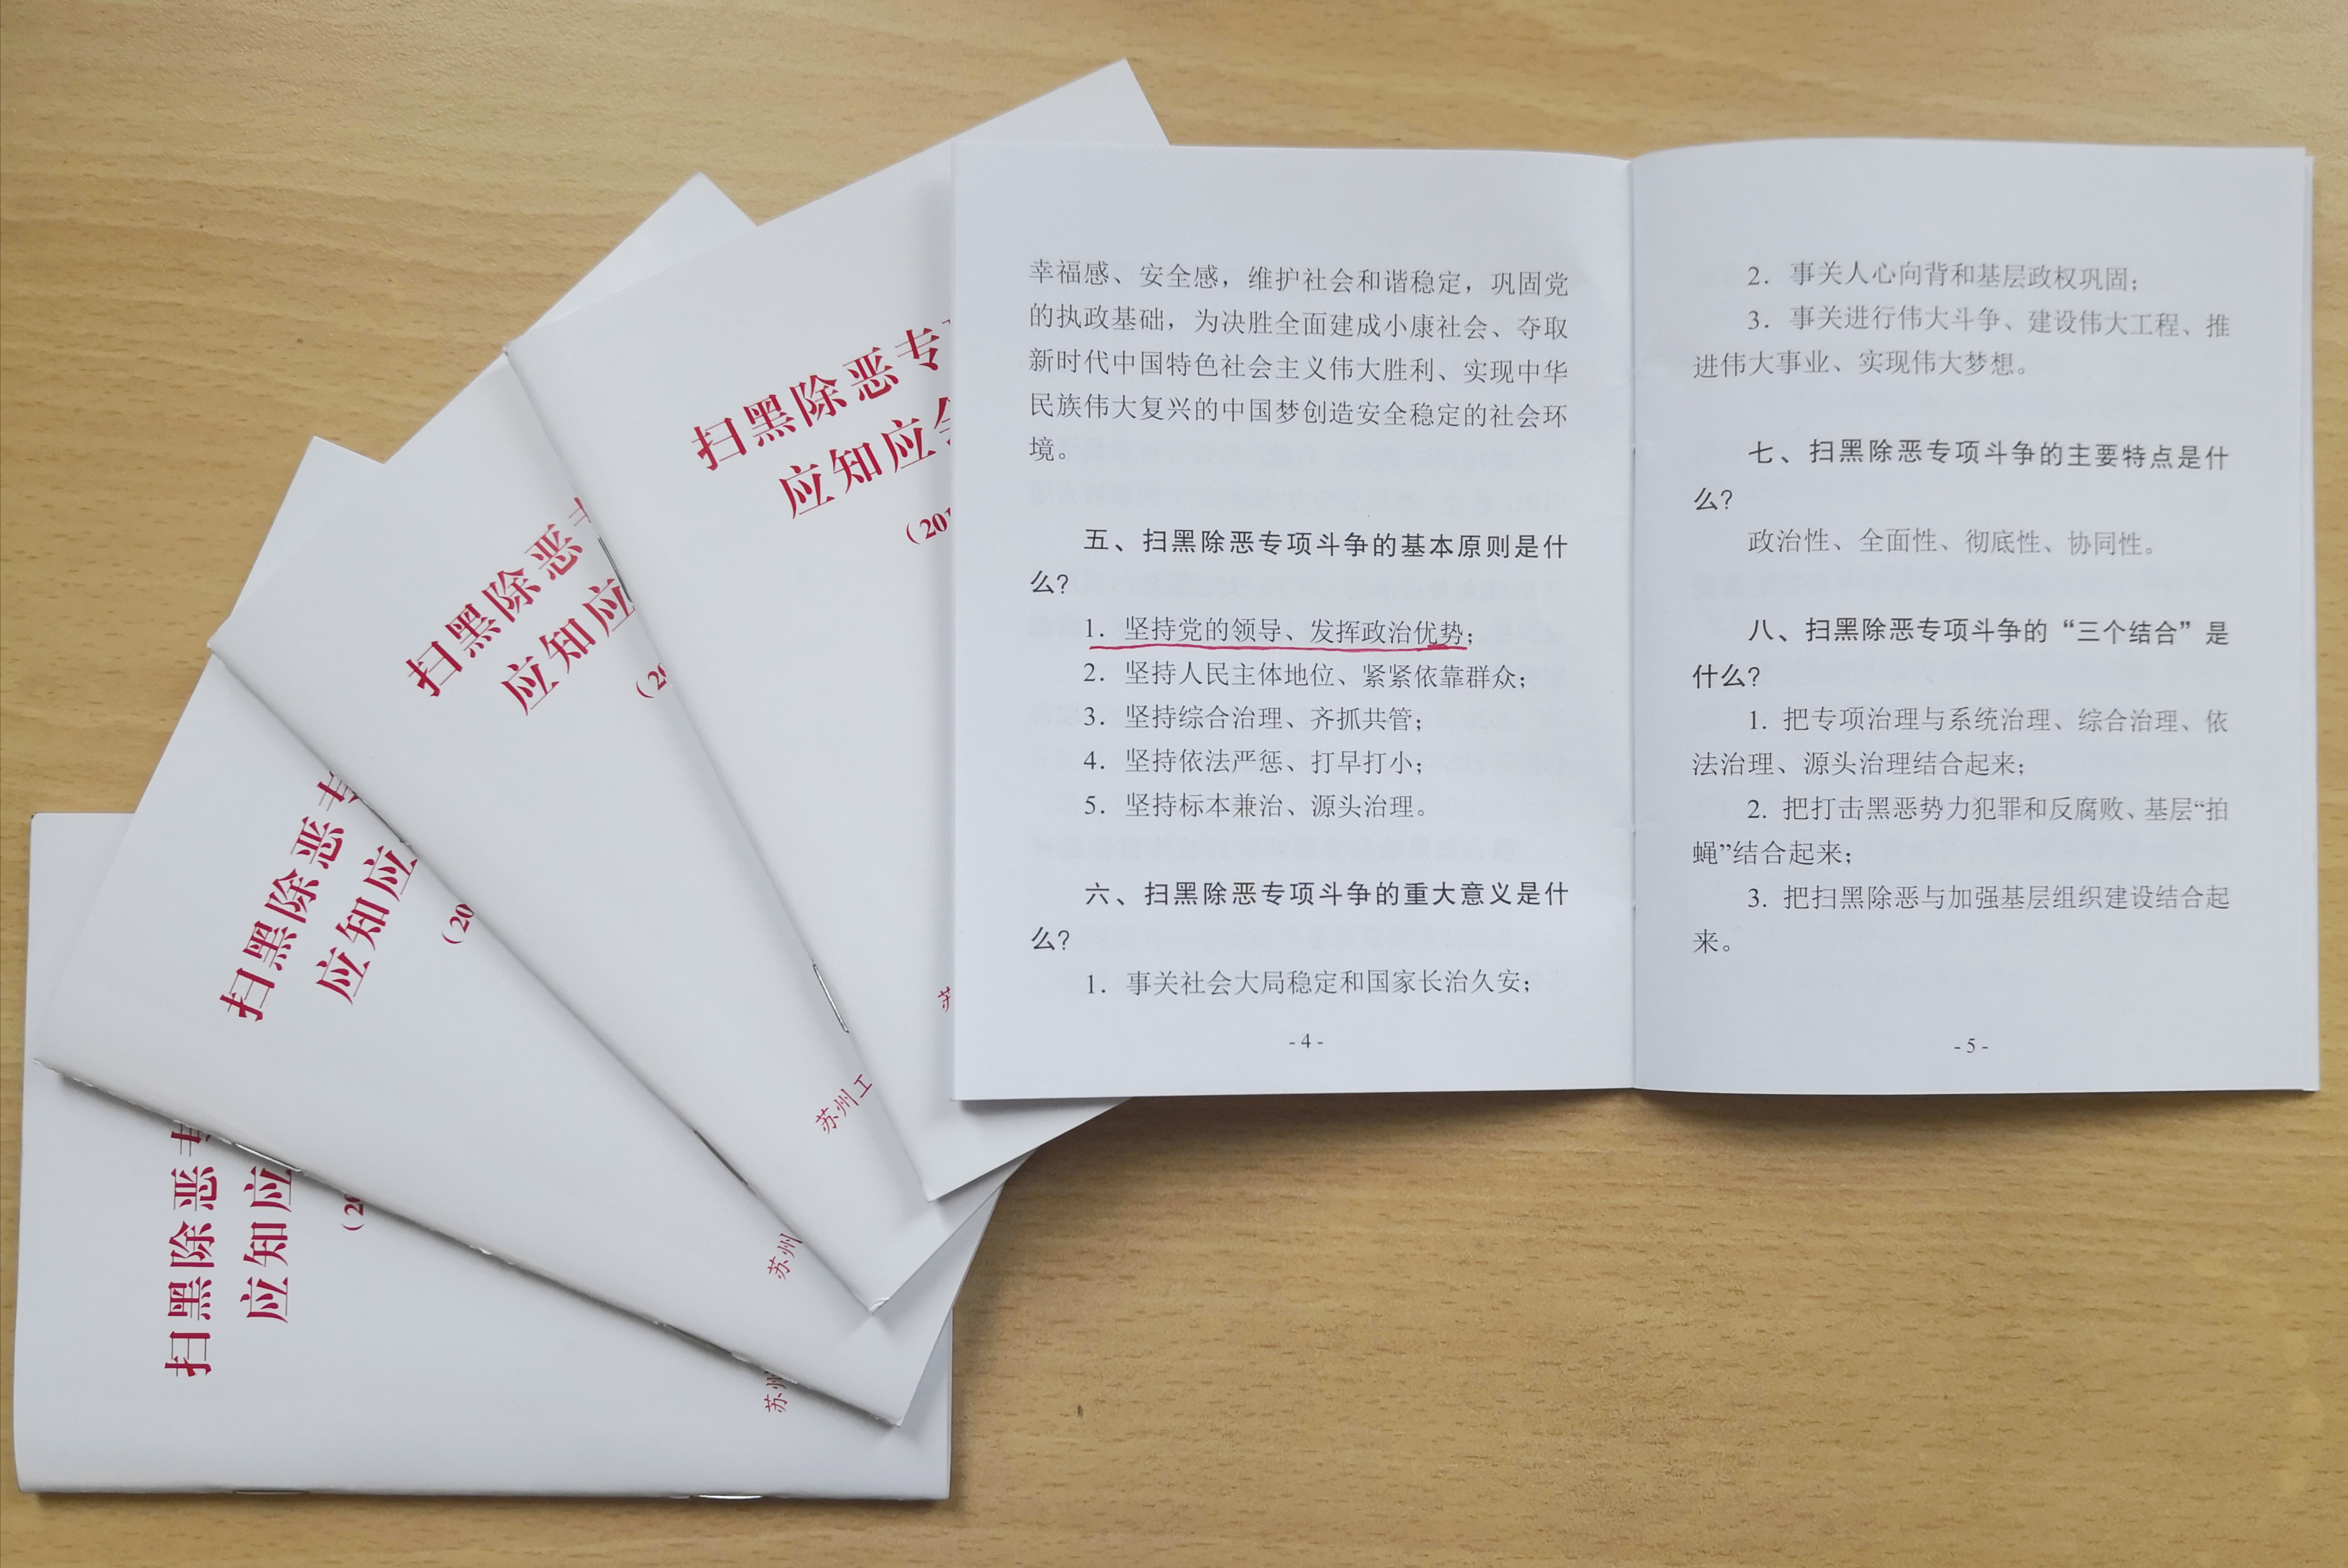 扫黑除恶专
应知应
(20
苏州
扫黑除恶专
应知应
(20
苏州
扫黑除恶
应知应
(20
苏州工
扫黑除恶专
应知应
(201
苏
幸福感、安全感，维护社会和谐稳定，巩固党
的执政基础，为决胜全面建成小康社会、夺取
新时代中国特色社会主义伟大胜利、实现中华
民族伟大复兴的中国梦创造安全稳定的社会环
境。
五、扫黑除恶专项斗争的基本原则是什
么？
1. 坚持党的领导、发挥政治优势；
2. 坚持人民主体地位、紧紧依靠群众；
3. 坚持综合治理、齐抓共管；
4. 坚持依法严惩、打早打小；
5. 坚持标本兼治、源头治理。
六、扫黑除恶专项斗争的重大意义是什
么？
1. 事关社会大局稳定和国家长治久安；
- 4 -
2. 事关人心向背和基层政权巩固；
3. 事关进行伟大斗争、建设伟大工程、推
进伟大事业、实现伟大梦想。
七、扫黑除恶专项斗争的主要特点是什
么？
政治性、全面性、彻底性、协同性。
八、扫黑除恶专项斗争的“三个结合”是
什么？
1. 把专项治理与系统治理、综合治理、依
法治理、源头治理结合起来；
2. 把打击黑恶势力犯罪和反腐败、基层“拍
蝇”结合起来；
3. 把扫黑除恶与加强基层组织建设结合起
来。
- 5 -